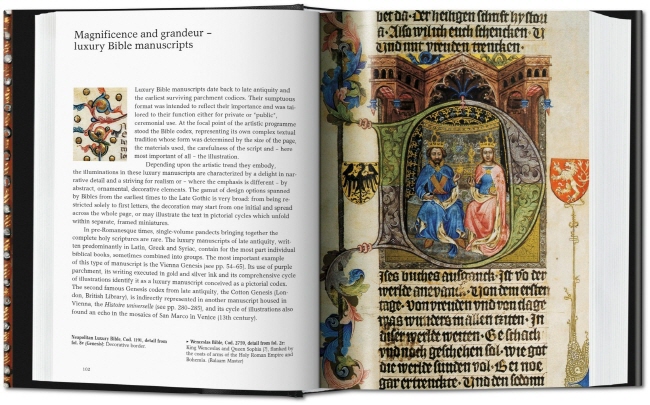 Magnificence and grandeur –
luxury Bible manuscripts
Luxury Bible manuscripts date back to late antiquity and
the earliest surviving parchment codices. Their sumptuous
format was intended to reflect their importance and was tai-
lored to their function either for private or "public",
ceremonial use. At the focal point of the artistic programme
stood the Bible codex, representing its own complex textual
tradition whose form was determined by the size of the page,
the materials used, the carefulness of the script and – here
most important of all – the illustration.
Depending upon the artistic trend they embody,
the illuminations in these luxury manuscripts are characterized by a delight in nar-
rative detail and a striving for realism or – where the emphasis is different – by
abstract, ornamental, decorative elements. The gamut of design options spanned
by Bibles from the earliest times to the Late Gothic is very broad: from being re-
stricted solely to first letters, the decoration may start from one initial and spread
across the whole page, or may illustrate the text in pictorial cycles which unfold
within separate, framed miniatures.
In pre-Romanesque times, single-volume pandects bringing together the
complete holy scriptures are rare. The luxury manuscripts of late antiquity, writ-
ten predominantly in Latin, Greek and Syriac, contain for the most part individual
biblical books, sometimes combined into groups. The most important example
of this type of manuscript is the Vienna Genesis (see pp. 54–65). Its use of purple
parchment, its writing executed in gold and silver ink and its comprehensive cycle
of illustrations identify it as a luxury manuscript conceived as a pictorial codex.
The second famous Genesis codex from late antiquity, the Cotton Genesis (Lon-
don, British Library), is indirectly represented in another manuscript housed in
Vienna, the Histoire universelle (see pp. 280–285), and its cycle of illustrations also
found an echo in the mosaics of San Marco in Venice (13th century).
Neapolitan Luxury Bible, Cod. 1191, detail from
fol. 8v (Genesis): Decorative border.
▸ Wenceslas Bible, Cod. 2759, detail from fol. 2r:
King Wenceslas and Queen Sophia (?), flanked by
the coats of arms of the Holy Roman Empire and
Bohemia. (Balaam Master)
102
ber da · Der heiligen schrift hystori
a · Also wil ich euch schencken · Ir
Vnd mit vreuden trencken ·
Ises buches anefanck · Ist vor der
werlte · Von dem ersten
tage · Von vreuden vnd von clage
was wunders in allen zeiten · In
diser werlte weiten · Geschach
vnd noch geschehen sol · wie got
die werlde sunden vol · Bei noe
gar ertrenckte · Vnd den